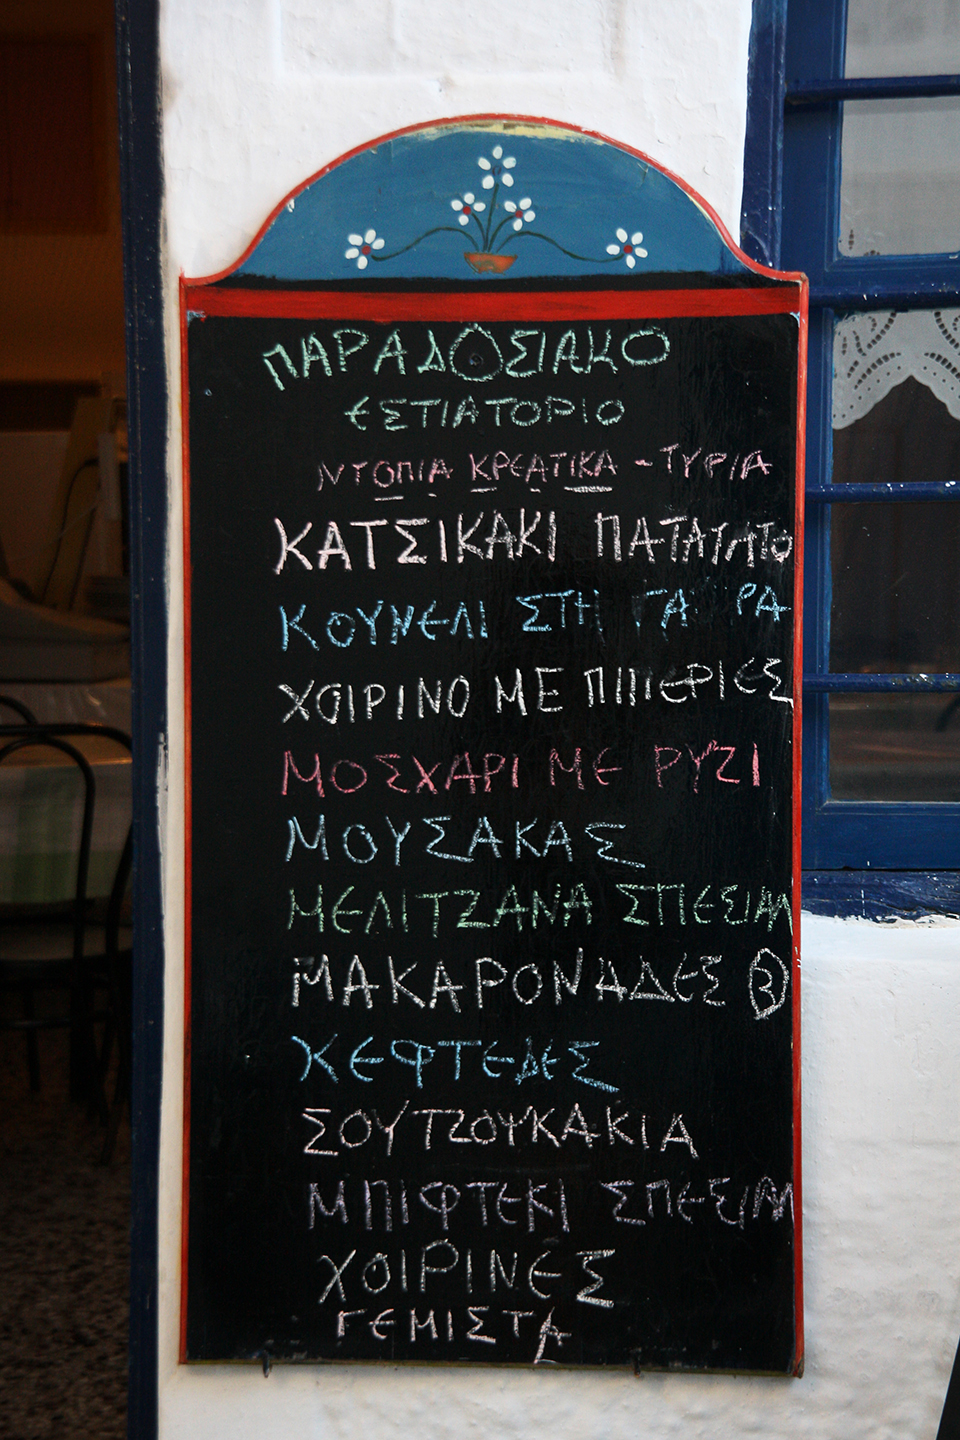 ΠΑΡΑΔΟΣΙΑΚΟ
ΕΣΤΙΑΤΟΡΙΟ
ΝΤΟΠΙΑ ΚΡΕΑΤΙΚΑ - ΤΥΡΙΑ
ΚΑΤΣΙΚΑΚΙ ΠΑΤΑΤΑΤΟ
ΚΟΥΝΕΛΙ ΣΤΗ
ΧΟΙΡΙΝΟ ΜΕ ΠΙΠΕΡΙΕΣ
ΜΟΣΧΑΡΙ ΜΕ ΡΥΖΙ
ΜΟΥΣΑΚΑΣ
ΜΕΛΙΤΖΑΝΑ ΣΠΕΣΙΑΛ
ΜΑΚΑΡΟΝΑΔΕΣ 3
ΚΕΦΤΕΔΕΣ
ΣΟΥΤΖΟΥΚΑΚΙΑ
ΜΠΙΦΤΕΚΙ ΣΠΕΣΙΑΛ
ΧΟΙΡΙΝΕΣ
ΓΕΜΙΣΤΑ